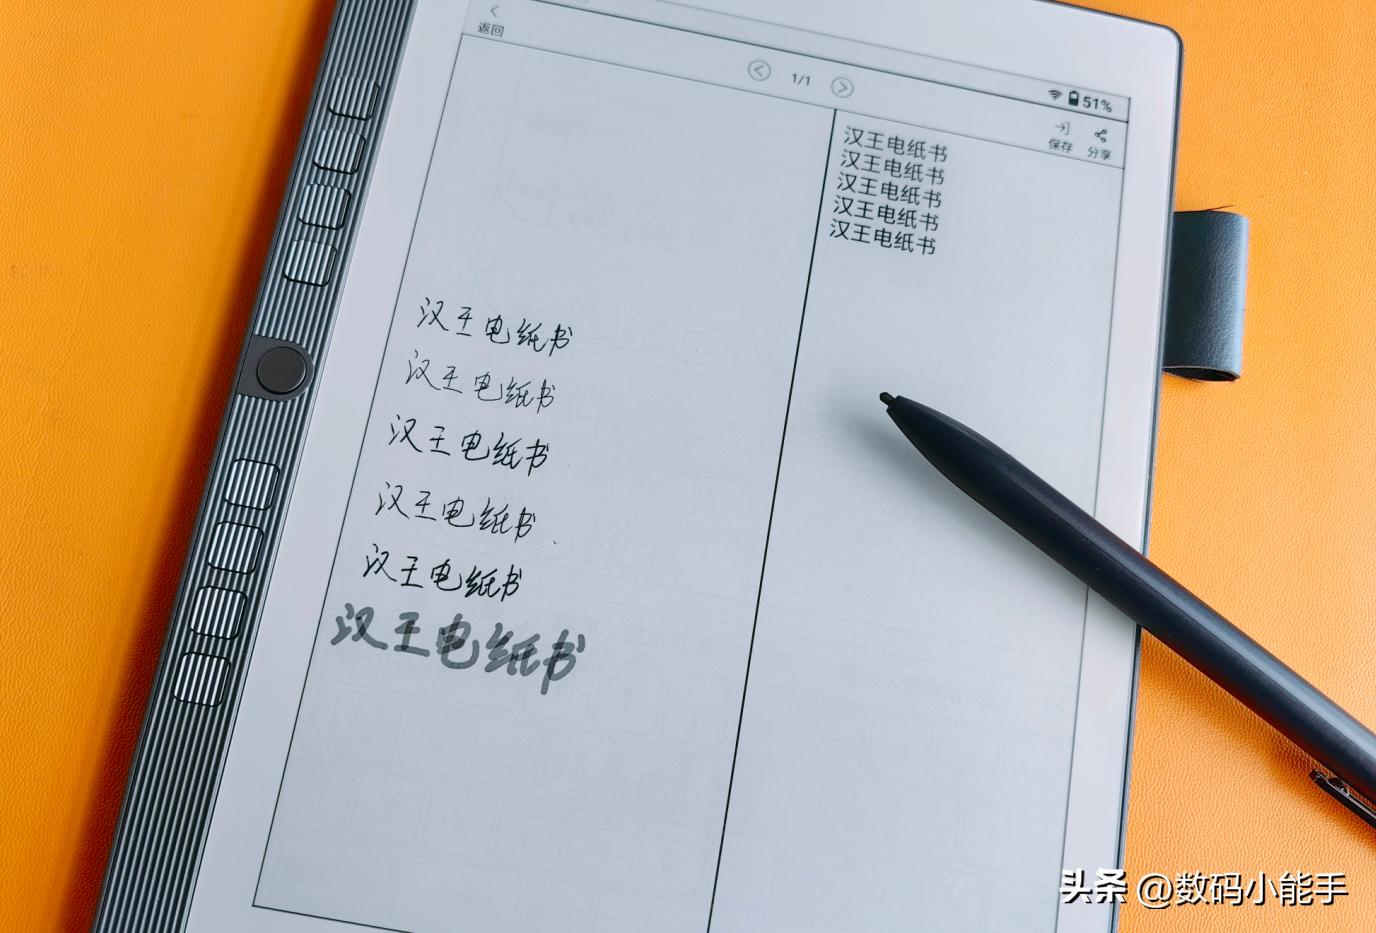 返回
1/1
51%
保存 分享
汉王电纸书
汉王电纸书
汉王电纸书
汉王电纸书
汉王电纸书
汉王电纸书
汉王电纸书
汉王电纸书
汉王电纸书
汉王电纸书
汉王电纸书
头条 @数码小能手